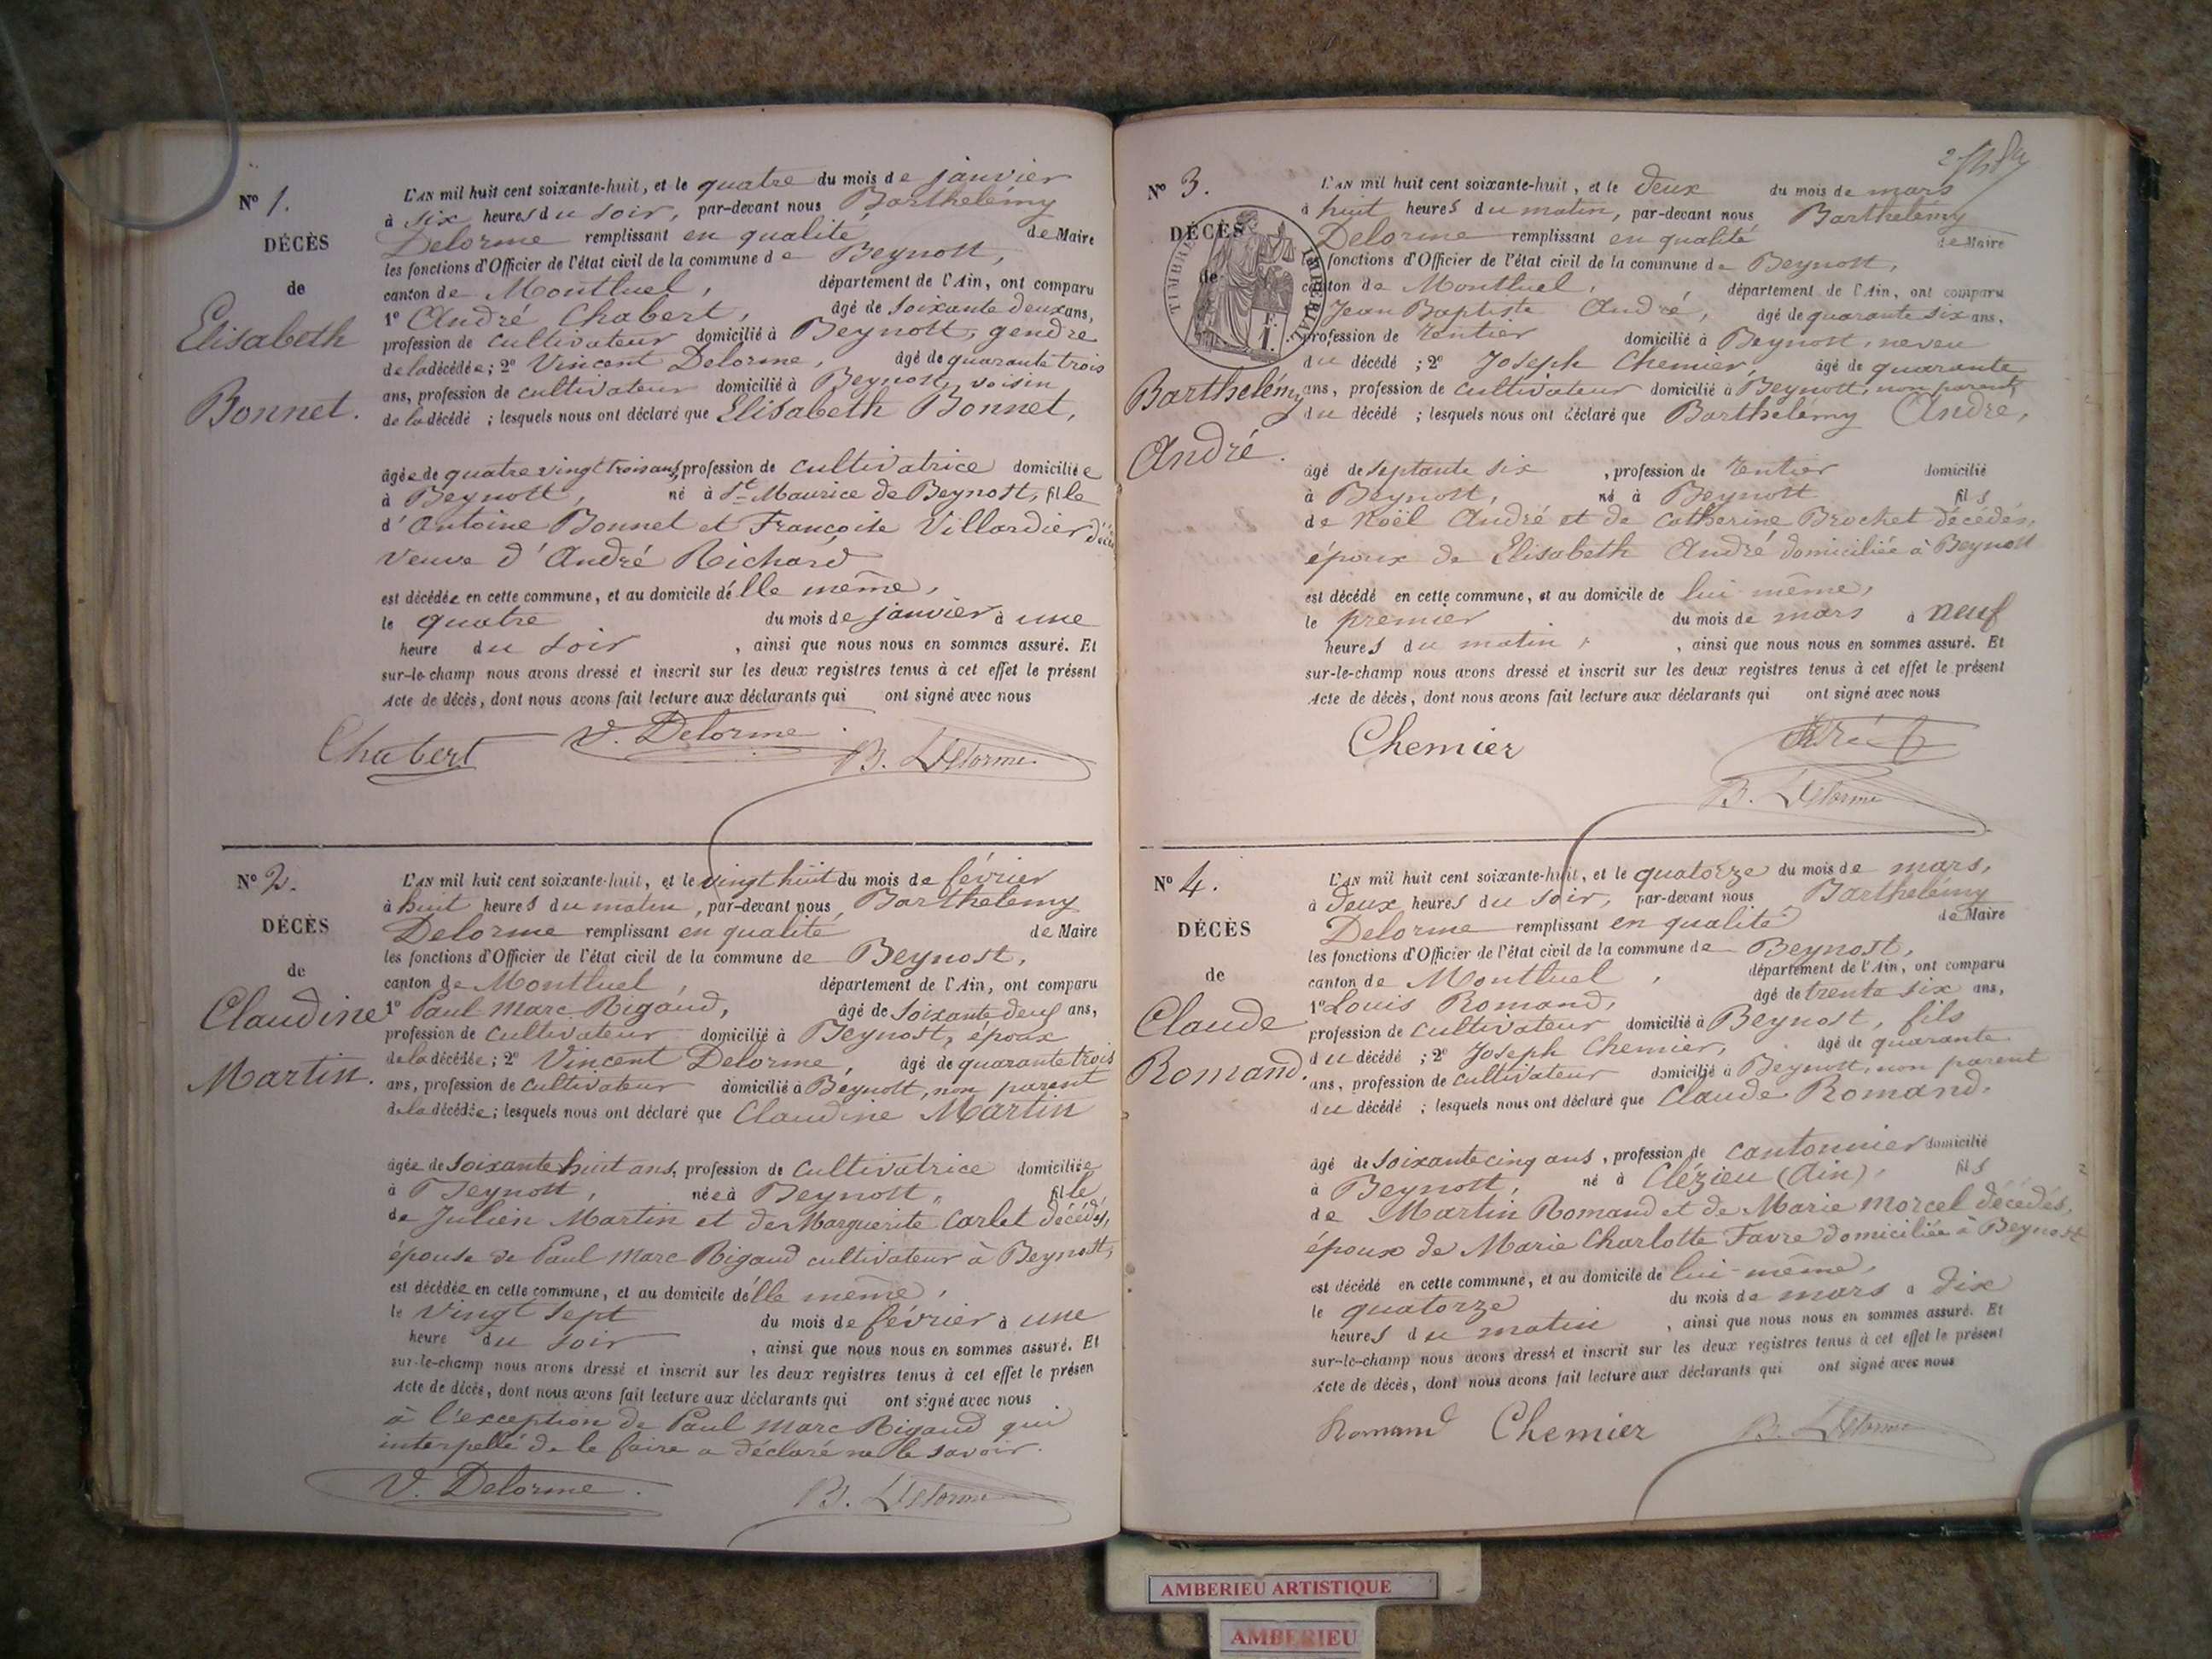 N° 1.
DÉCÈS
de
Elisabeth
Bonnet.
L'AN mil huit cent soixante-huit, et le quatre du mois de janvier
à six heures du soir, par-devant nous Barthelémy
Delorme remplissant en qualité de Maire
les fonctions d'Officier de l'état civil de la commune de Beynost,
canton de Montluel, département de l'Ain, ont comparu
1° André Chabert, âgé de soixante deux ans,
profession de cultivateur domicilié à Beynost, gendre
de la décédée; 2° Vincent Delorme, âgé de quarante trois
ans, profession de cultivateur domicilié à Beynost, voisin
de la décédé ; lesquels nous ont déclaré que Elisabeth Bonnet,
âgée de quatre vingt trois ans, profession de cultivatrice domiciliée
à Beynost, né à St Maurice de Beynost, fille
d'Antoine Bonnet et Françoise Villardier
veuve d'André Richard
est décédée en cette commune, et au domicile d'elle même,
le quatre du mois de janvier à une
heure du soir , ainsi que nous nous en sommes assuré. Et
sur-le-champ nous avons dressé et inscrit sur les deux registres tenus à cet effet le présent
Acte de décès, dont nous avons fait lecture aux déclarants qui ont signé avec nous
Chabert V. Delorme B. Delorme
N° 2.
DÉCÈS
de
Claudine
Martin.
L'AN mil huit cent soixante-huit, et le vingt huit du mois de février
à huit heures du matin, par-devant nous Barthelémy
Delorme remplissant en qualité de Maire
les fonctions d'Officier de l'état civil de la commune de Beynost,
canton de Montluel, département de l'Ain, ont comparu
1° Paul Marc Rigaud, âgé de soixante deux ans,
profession de cultivateur domicilié à Beynost, époux
de la décédée; 2° Vincent Delorme, âgé de quarante trois
ans, profession de cultivateur domicilié à Beynost, non parent
de la décédée; lesquels nous ont déclaré que Claudine Martin
âgée de soixante huit ans, profession de cultivatrice domiciliée
à Beynost, née à Beynost, fille
de Julien Martin et de Marguerite Carlet décédés,
épouse de Paul Marc Rigaud cultivateur à Beynost,
est décédée en cette commune, et au domicile d'elle même,
le vingt sept du mois de février à une
heure du soir , ainsi que nous nous en sommes assuré. Et
sur-le-champ nous avons dressé et inscrit sur les deux registres tenus à cet effet le présen
Acte de décès, dont nous avons fait lecture aux déclarants qui ont signé avec nous
à l'exception de Paul Marc Rigaud qui
interpellé de le faire a déclaré ne le savoir.
V. Delorme. B. Delorme
2
N° 3.
DÉCÈS
de
TIMBRE IMPERIAL
F.
1.
Barthelémy
André.
L'AN mil huit cent soixante-huit, et le deux du mois de mars
à huit heures du matin, par-devant nous Barthelémy
Delorme remplissant en qualité de Maire
les fonctions d'Officier de l'état civil de la commune de Beynost,
canton de Montluel, département de l'Ain, ont comparu
Jean Baptiste André, âgé de quarante six ans,
profession de rentier domicilié à Beynost, neveu
du décédé ; 2° Joseph Chemier, âgé de quarante
ans, profession de cultivateur domicilié à Beynost, non parent
du décédé ; lesquels nous ont déclaré que Barthelemy André,
âgé de septante six , profession de rentier domicilié
à Beynost, né à Beynost fils
de Noël André et de Catherine Brochet décédés,
époux de Elisabeth André domiciliée à Beynost
est décédé en cette commune, et au domicile de lui même,
le premier du mois de mars à neuf
heures du matin , ainsi que nous nous en sommes assuré. Et
sur-le-champ nous avons dressé et inscrit sur les deux registres tenus à cet effet le présent
Acte de décès, dont nous avons fait lecture aux déclarants qui ont signé avec nous
Chemier
B. Delorme
N° 4.
DÉCÈS
de
Claude
Romand.
L'AN mil huit cent soixante-huit, et le quatorze du mois de mars,
à deux heures du soir, par-devant nous Barthélemy
Delorme remplissant en qualité de Maire
les fonctions d'Officier de l'état civil de la commune de Beynost,
canton de Montluel, département de l'Ain, ont comparu
1° Louis Romand, âgé de trente six ans,
profession de cultivateur domicilié à Beynost, fils
du décédé ; 2° Joseph Chemier, âgé de quarante
ans, profession de cultivateur domicilié à Beynost, non parent
du décédé ; lesquels nous ont déclaré que Claude Romand,
âgé de soixante cinq ans, profession de cantonnier domicilié
à Beynost, né à Clézieu (Ain), fils
de Martin Romand et de Marie Morcel décédés,
époux de Marie Charlotte Favre domiciliée à Beynost
est décédé en cette commune, et au domicile de lui-même,
le quatorze du mois de mars à dix
heures du matin , ainsi que nous nous en sommes assuré. Et
sur-le-champ nous avons dressé et inscrit sur les deux registres tenus à cet effet le présent
Acte de décès, dont nous avons fait lecture aux déclarants qui ont signé avec nous
Romand Chemier B. Delorme
AMBERIEU ARTISTIQUE
AMBERIEU